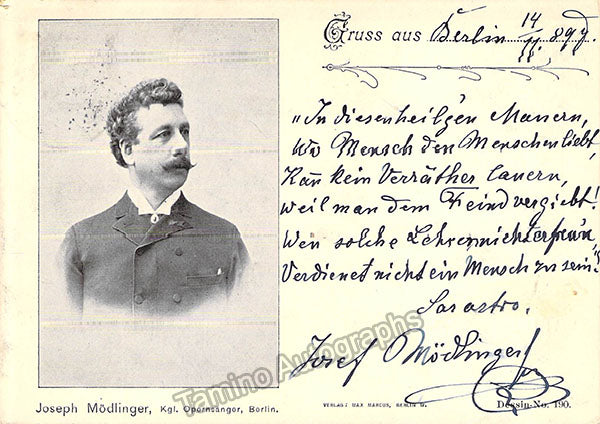 Gruss aus Berlin 14/11. 897.
„In diesen heil'gen Mauern,
Wo Mensch den Menschen liebt,
Kann kein Verräther lauern,
weil man dem Feind vergiebt!
Wen solche Lehren nicht erfreu'n,
Verdienet nicht ein Mensch zu sein."
Sarastro.
Josef Mödlinger
Tamino Autographs
Joseph Mödlinger, Kgl. Opernsänger, Berlin.
VERLAG V MAX MARCUS, BERLIN W.
Dessin-No. 190.